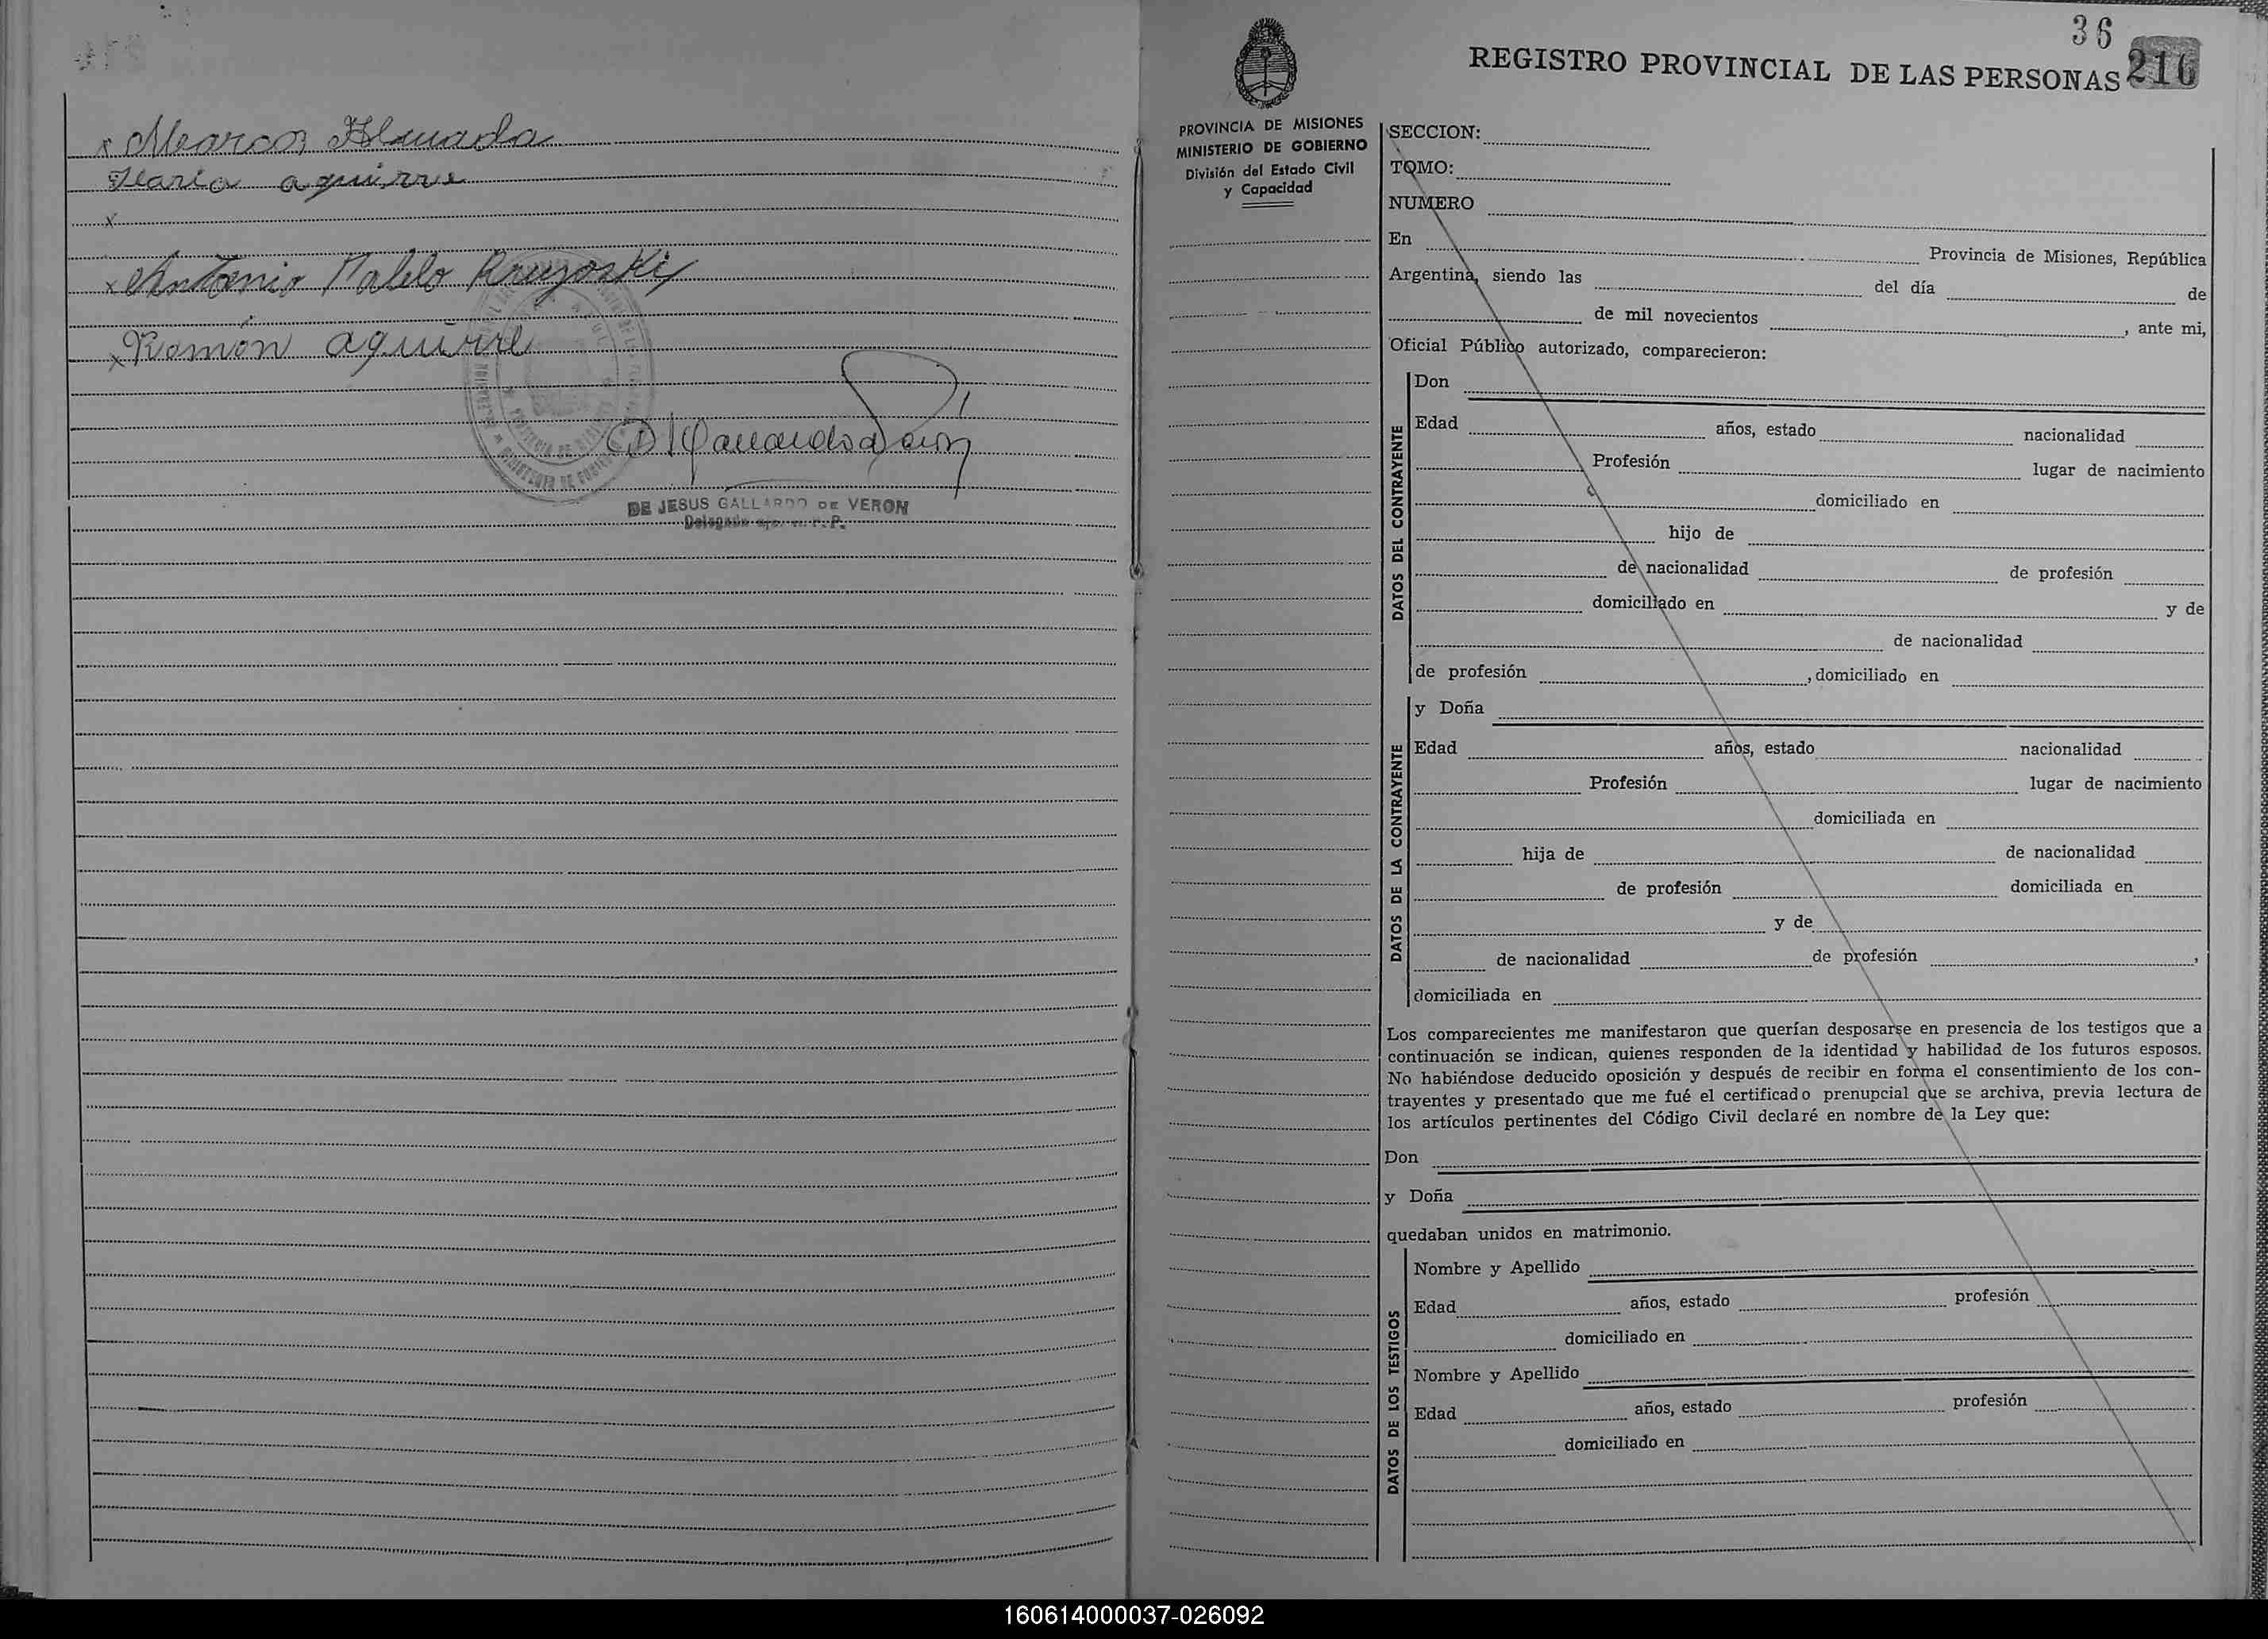 x Marcos Almada
Maria aguirre
x
x Antonio Pablo Kruzoski
x Ramón aguirre
DE JESUS GALLARDO DE VERON
36
REGISTRO PROVINCIAL DE LAS PERSONAS 216
PROVINCIA DE MISIONES
MINISTERIO DE GOBIERNO
División del Estado Civil
y Capacidad
SECCION:
TOMO:
NUMERO
En Provincia de Misiones, República
Argentina, siendo las del día de
de mil novecientos , ante mi,
Oficial Público autorizado, comparecieron:
DATOS DEL CONTRAYENTE
Don
Edad años, estado nacionalidad
Profesión lugar de nacimiento
domiciliado en
hijo de
de nacionalidad de profesión
domiciliado en y de
de nacionalidad
de profesión , domiciliado en
DATOS DE LA CONTRAYENTE
y Doña
Edad años, estado nacionalidad
Profesión lugar de nacimiento
domiciliada en
hija de de nacionalidad
de profesión domiciliada en
y de
de nacionalidad de profesión ,
domiciliada en
Los comparecientes me manifestaron que querían desposarse en presencia de los testigos que a
continuación se indican, quienes responden de la identidad y habilidad de los futuros esposos.
No habiéndose deducido oposición y después de recibir en forma el consentimiento de los con-
trayentes y presentado que me fué el certificado prenupcial que se archiva, previa lectura de
los artículos pertinentes del Código Civil declaré en nombre de la Ley que:
Don
y Doña
quedaban unidos en matrimonio.
DATOS DE LOS TESTIGOS
Nombre y Apellido
Edad años, estado profesión
domiciliado en
Nombre y Apellido
Edad años, estado profesión
domiciliado en
160614000037-026092